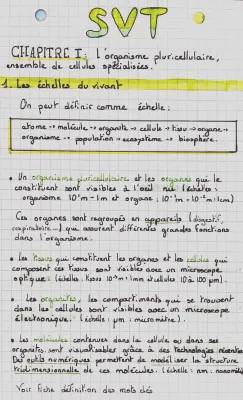 SVT
CHAPITRE I : l'organisme pluricellulaire,
ensemble de cellules spécialisées.
1. Les échelles du vivant
On peut définir comme échelle :
atome → molécule → organite → cellule → tissu → organe →
organisme → population → ecosystème → biosphère.
• Un organisme pluricellulaire et les organes qui le
constituent sont visibles à l'oeil nu (échelles :
organisme 10¹m - 1m et organe : 10⁻¹m - 10⁻²m : 1cm)
Ces organes sont regroupés en appareils (digestif,
respiratoire...) qui assurent différentes grandes fonctions
dans l'organisme.
• Les tissus qui constituent les organes et les cellules qui
composent ces tissus sont visibles avec un microscope
optique : (échelle : tissus : 1mm et cellules 10 à 100 µm).
• Les organites, les compartiments qui se trouvent
dans les cellules sont visibles avec un microscope
électronique : (échelle : µm : micromètre).
• Les molécules contenues dans la cellule ou dans ses
organites sont visualisables grâce à des technologies récentes
Des outils numériques permettent de modéliser la structure
tridimensionnelle de ces molécules (échelle : nm : nanomètre)
Voir fiche définition des mots clés